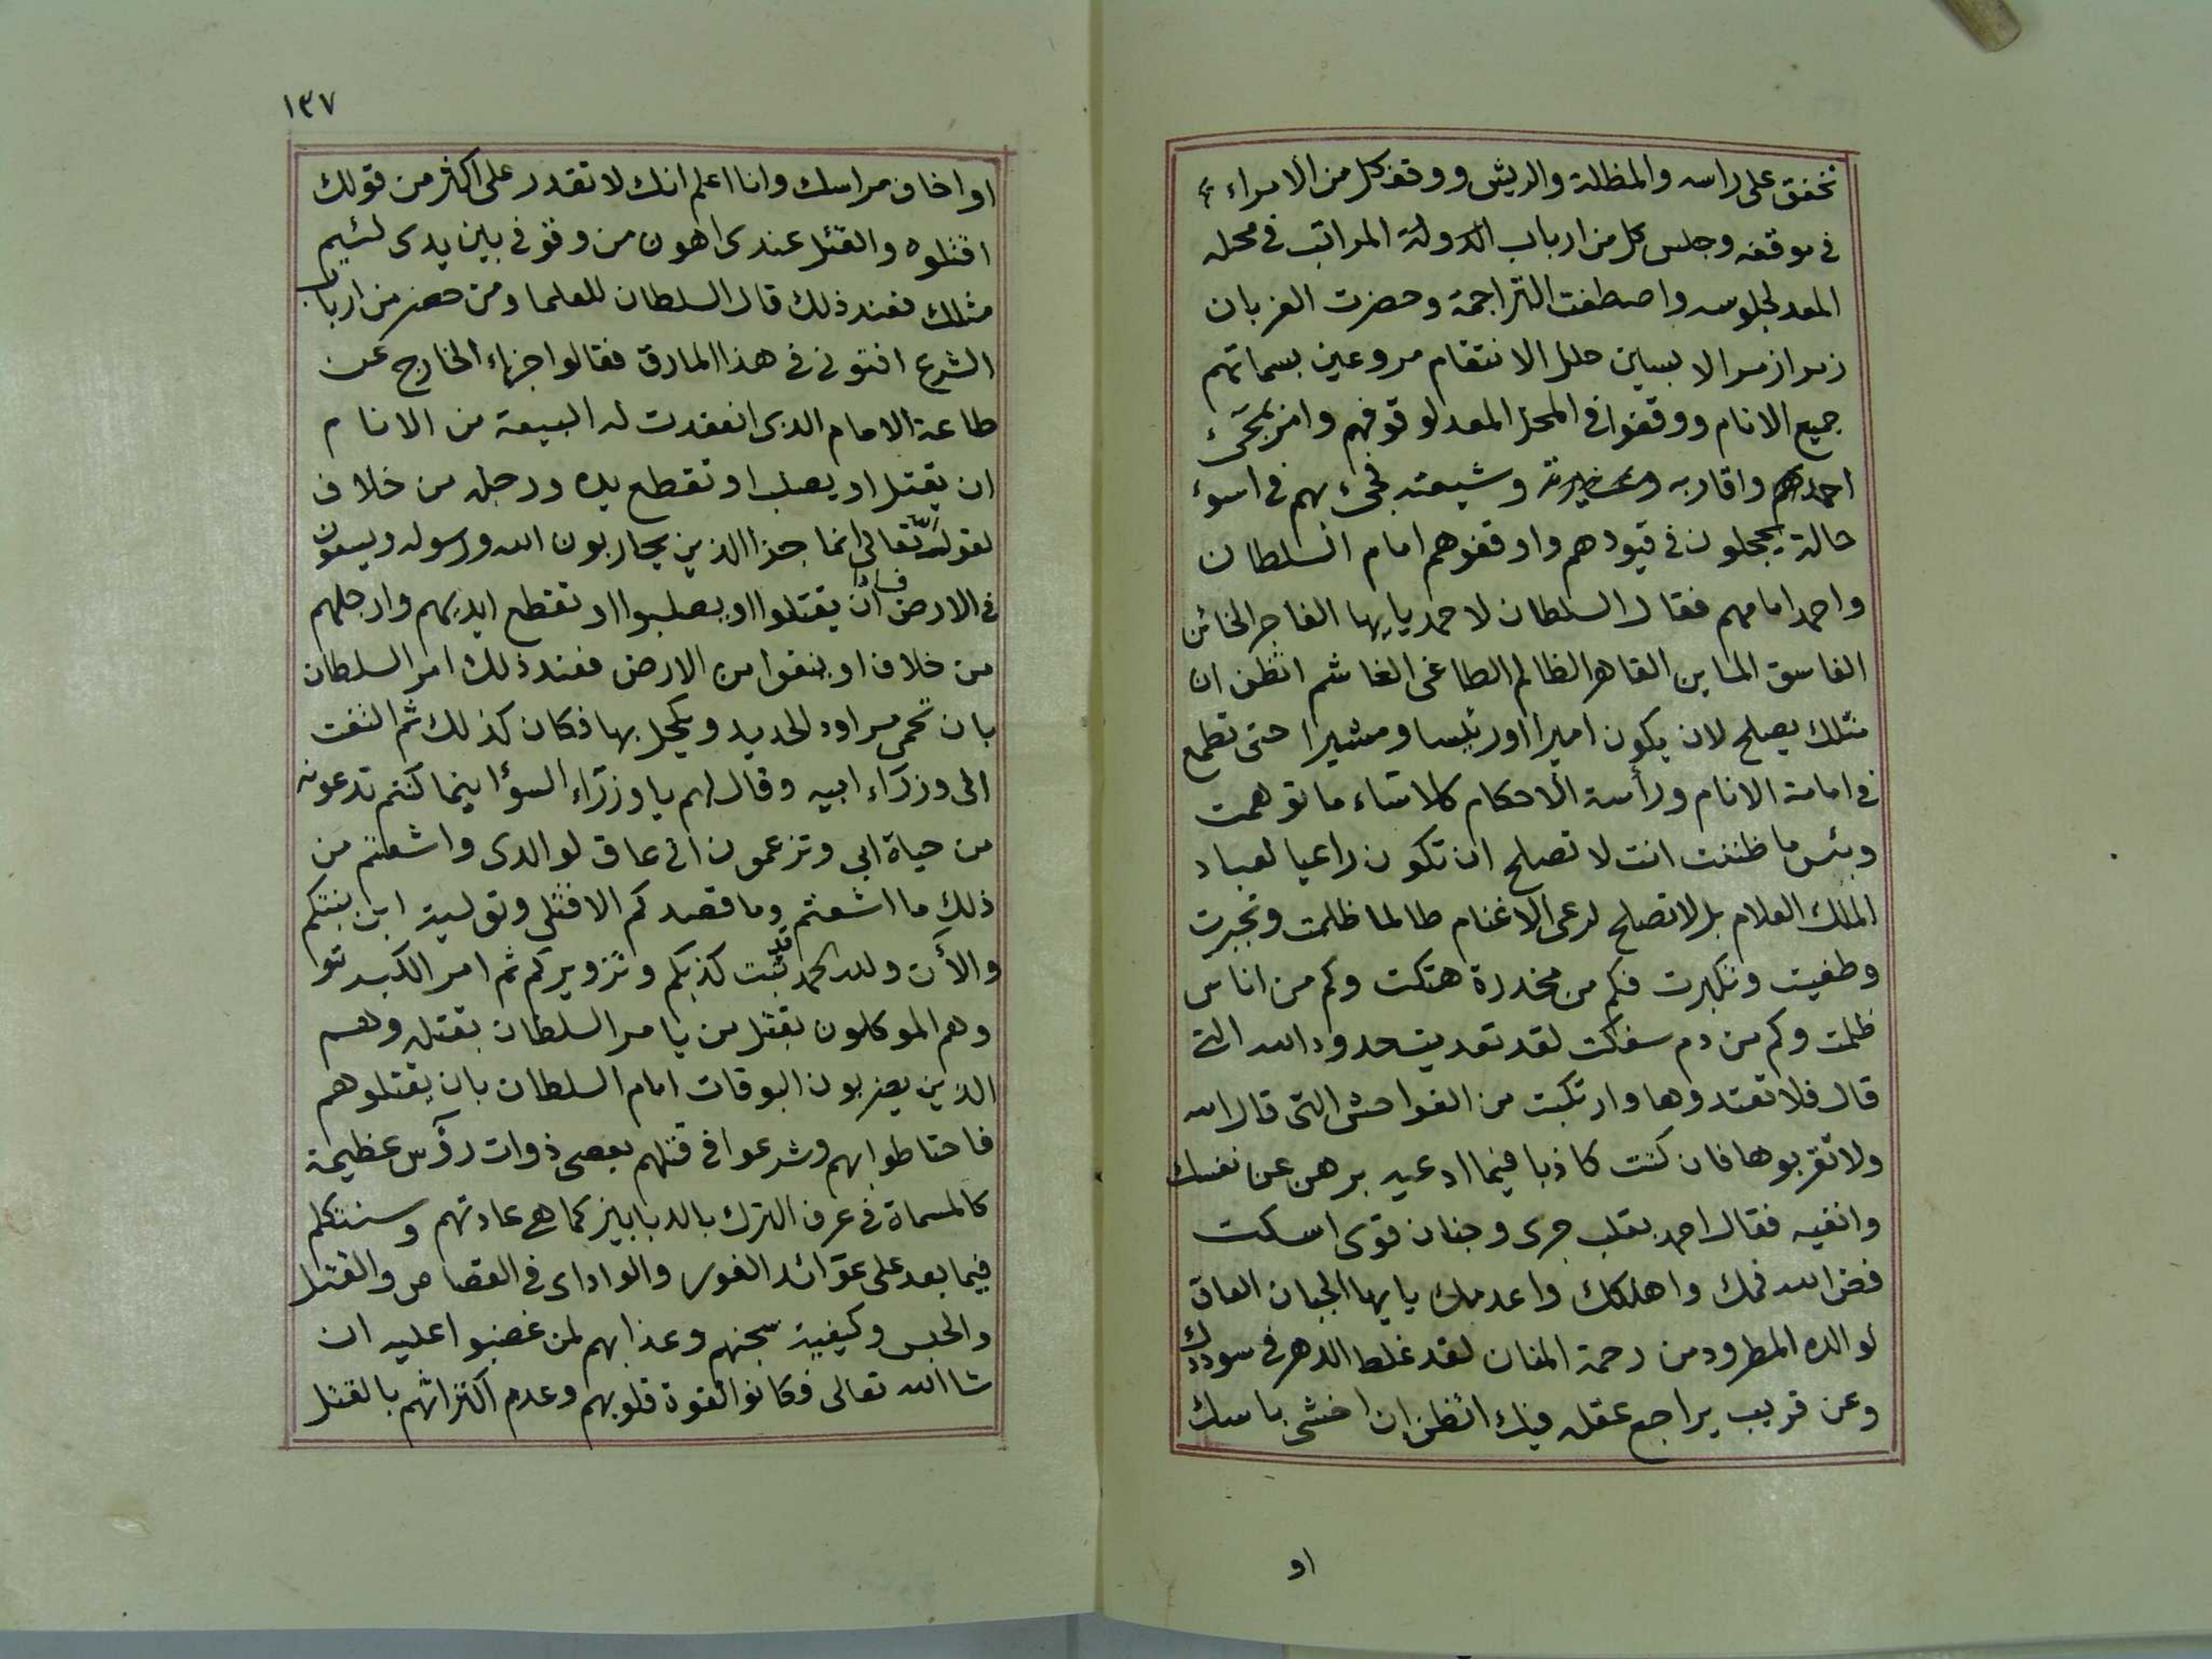 تخفق على راسه والمظلة والريش ووقف كل من الامراء
فى موقفه وجلس كل من ارباب الدولة المراتب فى محله
المعد لجلوسه واصطفت التراجمة وحضرت العزبان
زمرا زمرا لابسين حلل الانتقام مروعين بسماتهم
جميع الانام ووقفوا فى المحل المعد لوقوفهم وامر بمجئ
احمد واقاربه وعشيرته وشيعته فجئ بهم فى اسوء
حالة يحجلون فى قيودهم واوقفوهم امام السلطان
واحمد امامهم فقال السلطان لاحمد يايها الفاجر الخائن
الفاسق الماين القاهر الظالم الطاغى الغاشم اتظن ان
مثلك يصلح لان يكون اميرا اورئيسا ومشيرا حتى تطمع
فى امامة الانام ورأسة الأحكام كلا ساء ما توهمت
وبئس ما ظننت انت لا تصلح ان تكون راعيا لعباد
الملك العلام بل لا تصلح لرعى الاغنام طالما ظلمت وتجبرت
وطغيت وتكبرت فكم من مخدرة هتكت وكم من اناس
ظلمت وكم من دم سفكت لقد تعديت حدود الله التى
قال فلا تعتدوها وارتكبت من الفواحش التى قال الله
ولا تقربوها فان كنت كاذبا فيما ادعيه برهن عن نفسك
وانفيه فقال احمد بقلب جرى وجنان قوى اسكت
فض الله فمك واهلكك واعدمك يايها الجبان العاق
لوالده المطرود من رحمة المنان لقد غلط الدهر فى سوددك
وعن قريب يراجع عقله فيك اتظن ان اخشى باسك
او
١٣٧
او اخاف مراسك وانا اعلم انك لا تقدر على اكثر من قولك
اقتلوه والقتل عندى اهون من وقوفى بين يدى لئيم
مثلك فعند ذلك قال السلطان للعلما ومن حضر من ارباب
الشرع افتونى فى هذا المارق فقالوا جزاء الخارج عن
طاعة الامام الذى انعقدت له البيعة من الانام
ان يقتل او يصلب او تقطع يده ورجله من خلاف
لقوله تعالى انما جزا الذين يحاربون الله ورسوله ويسعون
فى الارض فسادا ان يقتلوا او يصلبوا او تقطع ايديهم وارجلهم
من خلاف او ينفوا من الارض فعند ذلك امر السلطان
بان تحمى مراود الحديد ويكحل بها فكان كذلك ثم التفت
الى وزرآء ابيه وقال لهم يا وزرآء السؤ اينما كنتم تدعونه
من حياة ابى وتزعمون انى عاق لوالدى واشعتم من
ذلك ما اشعتم وما قصدكم الا قتلى وتولية ابن بنتكم
والآن ولله الحمد قد ثبت كذبكم وتزويركم ثم امر الكبرتو
وهم الموكلون بقتل من يامر السلطان بقتله وهم
الذين يضربون البوقات امام السلطان بان يقتلوهم
فاحتاطوا بهم وشرعوا فى قتلهم بعصى ذوات رؤس عظيمة
كالمسماة فى عرف الترك بالدبابيز كما هى عادتهم وسنتكلم
فيما بعد على عوآئد الفور والواداى فى القصاص والقتل
والحبس وكيفية سجنهم وعذابهم لمن غضبوا عليه ان
شا الله تعالى فكانوا لقوة قلوبهم وعدم اكتراثهم بالقتل